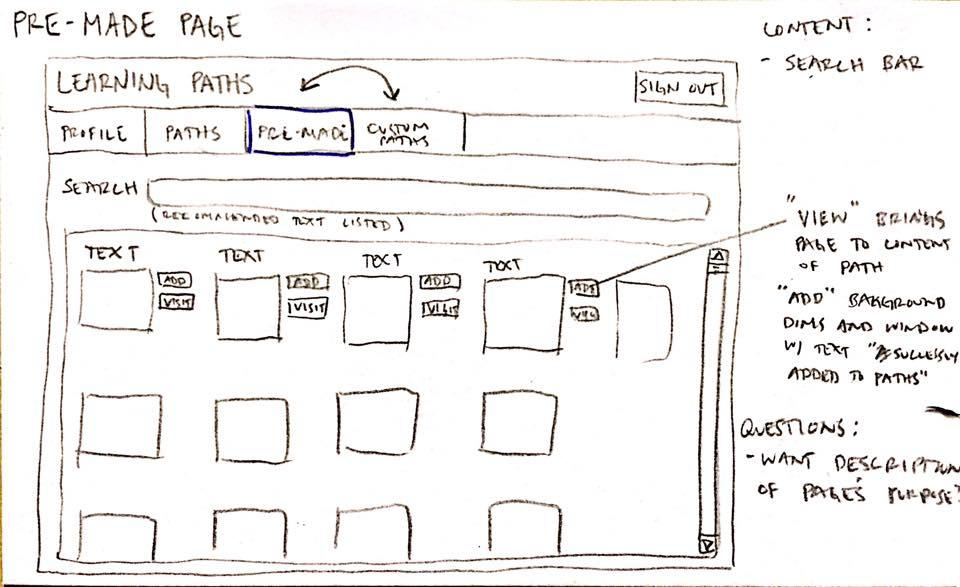 PRE-MADE PAGE
LEARNING PATHS
SIGN OUT
PROFILE
PATHS
PRE-MADE
CUSTUM
PATHS
SEARCH
(RECOMMENDED TEXT LISTED)
TEXT
TEXT
TEXT
TEXT
ADD
VISIT
ADD
VISIT
ADD
VISIT
ADD
CONTENT:
- SEARCH BAR
"VIEW" BRINGS
PAGE TO CONTENT
OF PATH
"ADD" BAKGROUND
DIMS AND WINDOW
W/ TEXT "
ADDED TO PATHS"
QUESTIONS:
- WANT DESCRIPTION
OF PAGE'S PURPOSE?